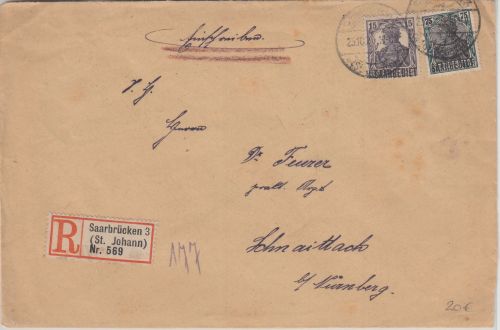 Einschreiben.
15 15
SAARGEBIET
75 75
SAARGEBIET
S. H.
Herrn
Dr. Feurer
prakt. Arzt
Schnaittach
b/Nürnberg.
R
Saarbrücken 3
(St. Johann)
Nr. 569
177
20 €